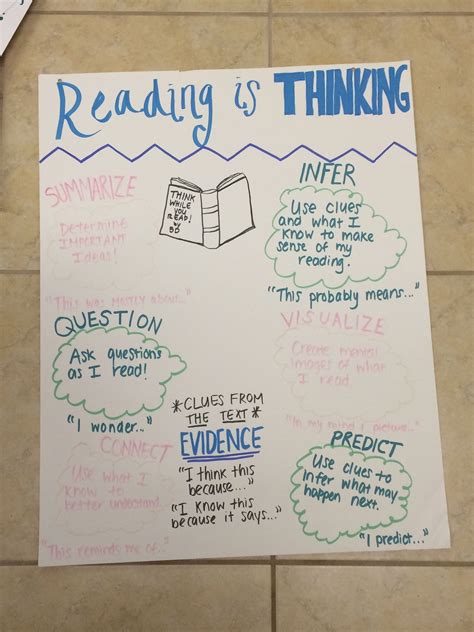 Reading is THINKING
SUMMARIZE
Determine
IMPORTANT
Ideas!
"This was mostly about..."
THINK
WHILE
YOU
READ!
by
INFER
Use clues
and what I
know to make
sense of my
reading.
"This probably means..."
QUESTION
Ask questions
as I read!
"I wonder..."
VISUALIZE
Create mental
images of what
I read.
"In my mind I picture..."
CONNECT
Use what I
know to
better understand.
"This reminds me of..."
*CLUES FROM
THE TEXT*
EVIDENCE
"I think this
because...."
"I know this
because it says..."
PREDICT
Use clues to
infer what may
happen next.
"I predict..."